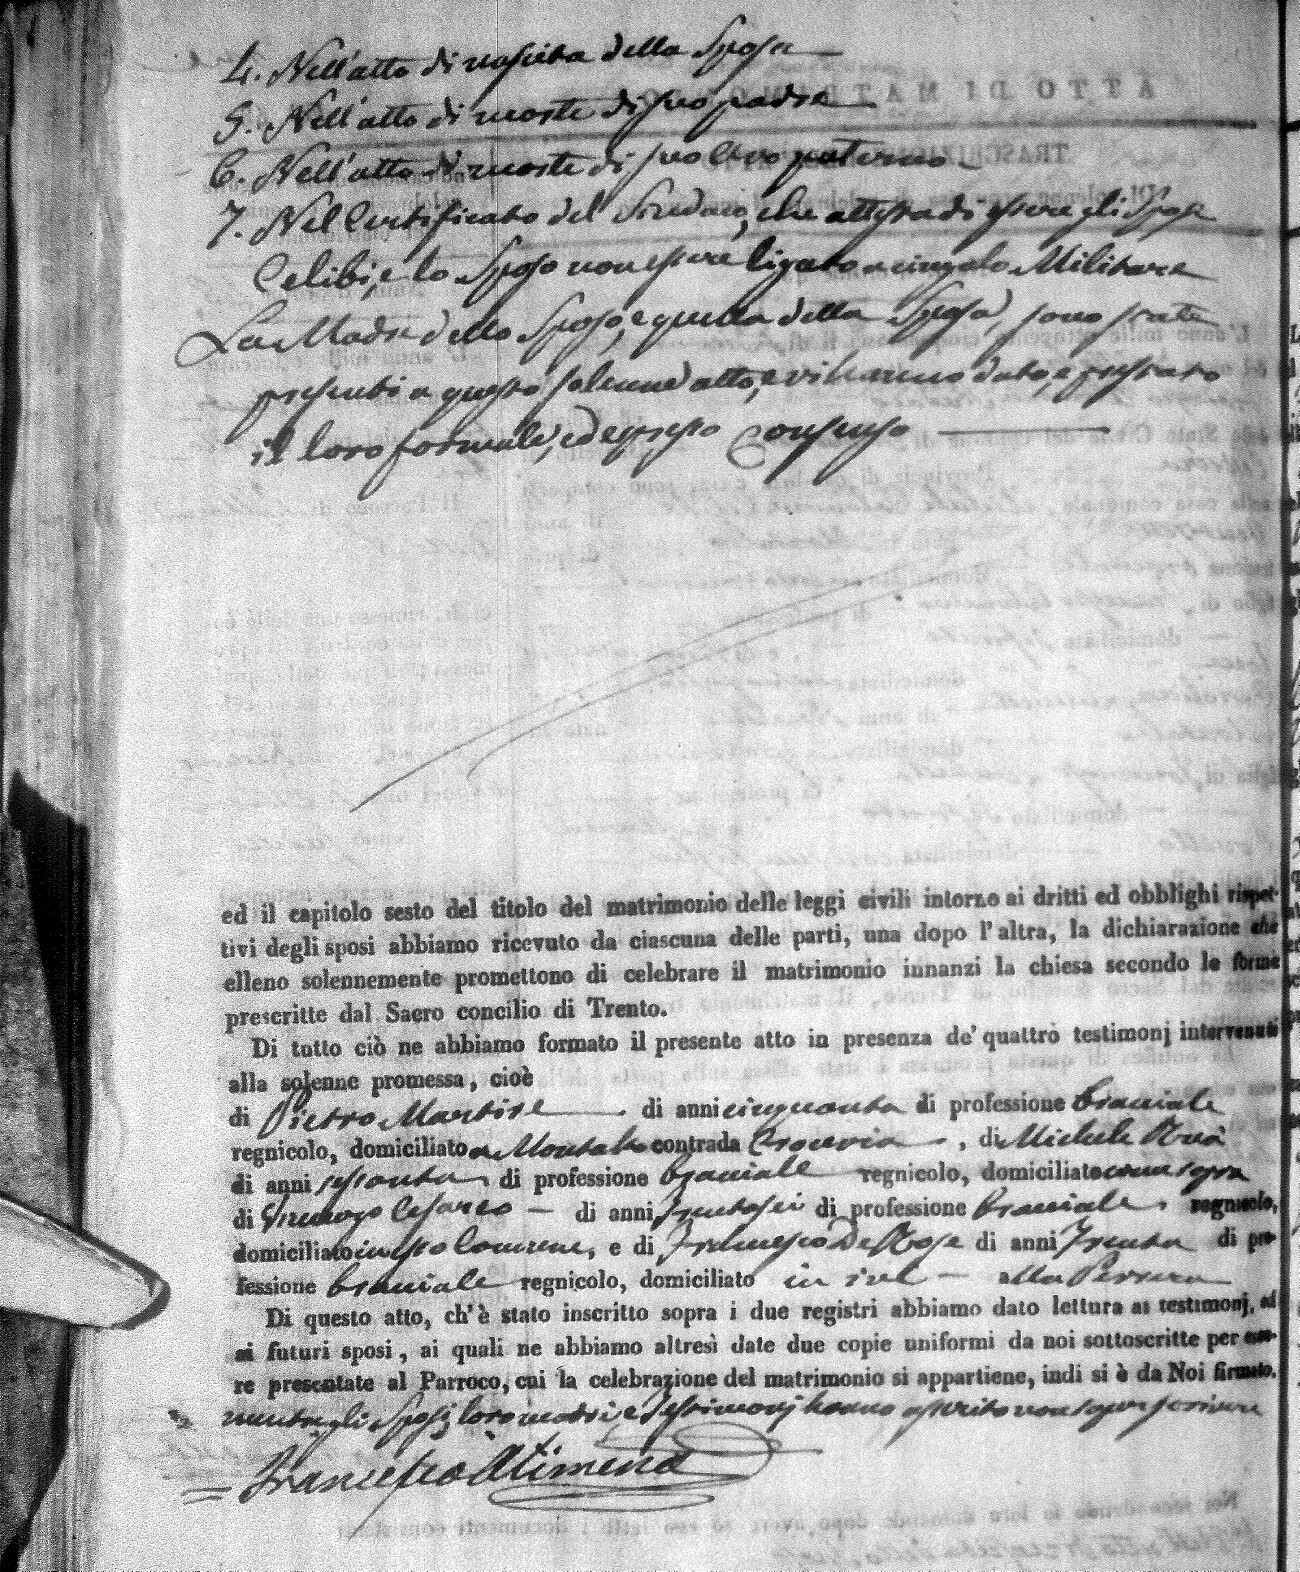 4. Nell'atto di nascita della Sposa
5. Nell'atto di morte di suo padre
6. Nell'atto di morte di suo Avo paterno
7. Nel Certificato del Sindaco, che attesta di essere gli Sposi
Celibi, e lo Sposo non essere ligato a cingolo Militare
La Madre dello Sposo, e quella della Sposa, sono state
presenti a questo solenne atto, e vi hanno dato, e prestato
il loro formale, ed espresso Consenso
ed il capitolo sesto del titolo del matrimonio delle leggi civili intorno ai dritti ed obblighi rispet-
tivi degli sposi abbiamo ricevuto da ciascuna delle parti, una dopo l'altra, la dichiarazione che
elleno solennemente promettono di celebrare il matrimonio innanzi la chiesa secondo le forme
prescritte dal Sacro concilio di Trento.
Di tutto ciò ne abbiamo formato il presente atto in presenza de' quattro testimonj intervenuti
alla solenne promessa, cioè
di Pietro Martire di anni cinquanta di professione bracciale
regnicolo, domiciliato a Montalto contrada , di Michele
di anni sessanta di professione bracciale regnicolo, domiciliato come sopra
di Cesareo di anni trentasei di professione bracciale regnicolo,
domiciliato in esso Comune, e di Francesco De Rose di anni Trenta di pro-
fessione bracciale regnicolo, domiciliato in alla
Di questo atto, ch'è stato inscritto sopra i due registri abbiamo dato lettura ai testimonj, ed
ai futuri sposi, ai quali ne abbiamo altresì date due copie uniformi da noi sottoscritte per esse-
re presentate al Parroco, cui la celebrazione del matrimonio si appartiene, indi si è da Noi firmato,
mentre gli Sposi, loro madri e Testimonj hanno asserito non saper scrivere
Francesco Alimena